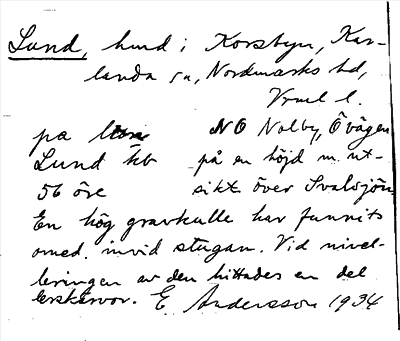 Lund, hmd i Korsbyn, Kar-
landa sn, Nordmarks hd,
Vrml l.
på NO Nolby, Övägen
Lund kb på en höjd m. ut-
56 öre sikt över Svalsjön
En hög gravkulle har funnits
omed. invid stugan. Vid nivel-
leringen av den hittades en del
lerskärvor. E Andersson 1934